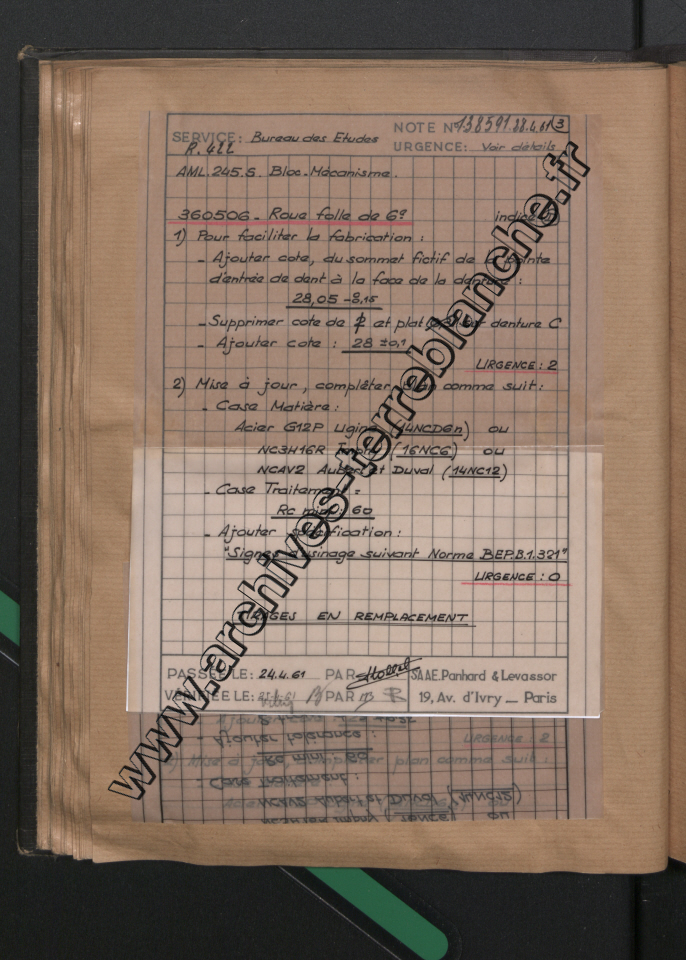 SERVICE: Bureau des Etudes
R. 422
NOTE N° 138591. 4.61 3
URGENCE: Voir détails
AML. 245.S. Bloc-Mécanisme.
360506 - Roue folle de 6e indice
1) Pour faciliter la fabrication :
- Ajouter cote, du sommet fictif de la pointe
d'entrée de dent à la face de la denture :
28,05 -0,15
- Supprimer cote de et plat sur denture C
- Ajouter cote : 28 ±0,1
URGENCE : 2
2) Mise à jour, compléter plan comme suit :
- Case Matière :
Acier G12P Ugine (14NCD6n) ou
NC3H16R Imphy (16NC6) ou
NCAV2 Aubert et Duval (14NC12)
- Case Traitement :
Rc mini : 60
- Ajouter spécification :
"Signes d'usinage suivant Norme BEP.B.1.321"
URGENCE : 0
TIRAGES EN REMPLACEMENT
PASSÉE LE: 24.4.61 PAR
SAAE. Panhard & Levassor
VÉRIFIÉE LE: PAR
19, Av. d'Ivry — Paris
- Ajouter tolérance :
URGENCE : 2
Rc mini : 60
2) Mise à jour, compléter plan comme suit :
- Case Traitement :
NCAV2 Aubert et Duval (14NC12)
NC3H16R Imphy (16NC6) ou
www.archives-terreblanche.fr